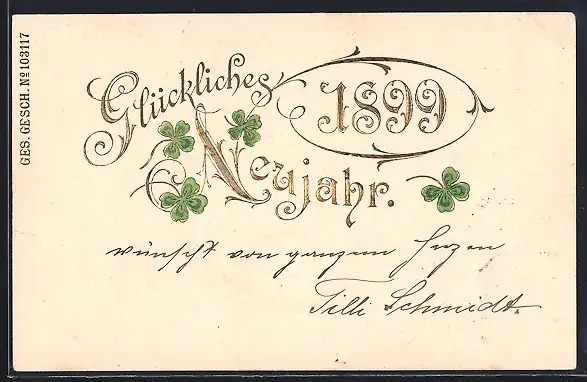 GES. GESCH. № 103117
Glückliches 1899
Neujahr.
wünscht von ganzem Herzen
Tilli Schmidt.